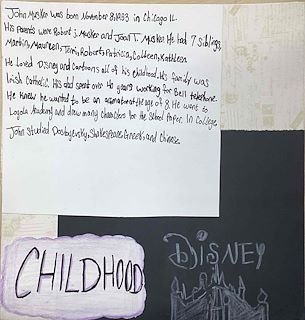 John Musker was born November 8, 1953 in Chicago IL.
His parents were Robert J. Musker and Joan T. Musker. He had 7 siblings
Martin, Maureen, Terri, Robert, Patricia, Colleen, Kathleen
He Loved Disney and Cartoons all of his childhood. His family was
Irish Catholic. His dad spent over 40 years working for Bell telephone.
He knew he wanted to be an animator at the age of 8. He went to
Loyola Academy and drew many characters for the School Paper. In College
John Studied Shakespeare and Chinese
CHILDHOOD
DISNEY